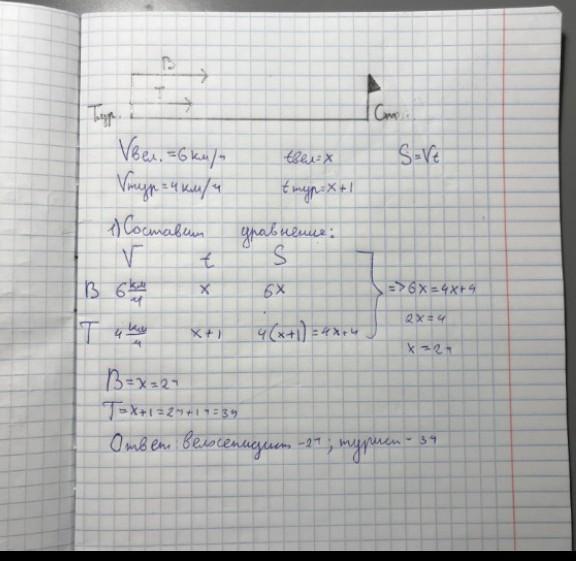 В
Т
Тур. Ст.
Vвел.=6км/ч tвел=x S=Vt
Vтур=4км/ч tтур=x+1
1) Составим уравнение:
V t S
В 6 км/ч x 6x =>6x=4x+4
2x=4
Т 4 км/ч x+1 4(x+1)=4x+4
x=2ч
В=x=2ч
Т=x+1=2ч+1ч=3ч
Ответ: велосепидист -2ч; турист- 3ч